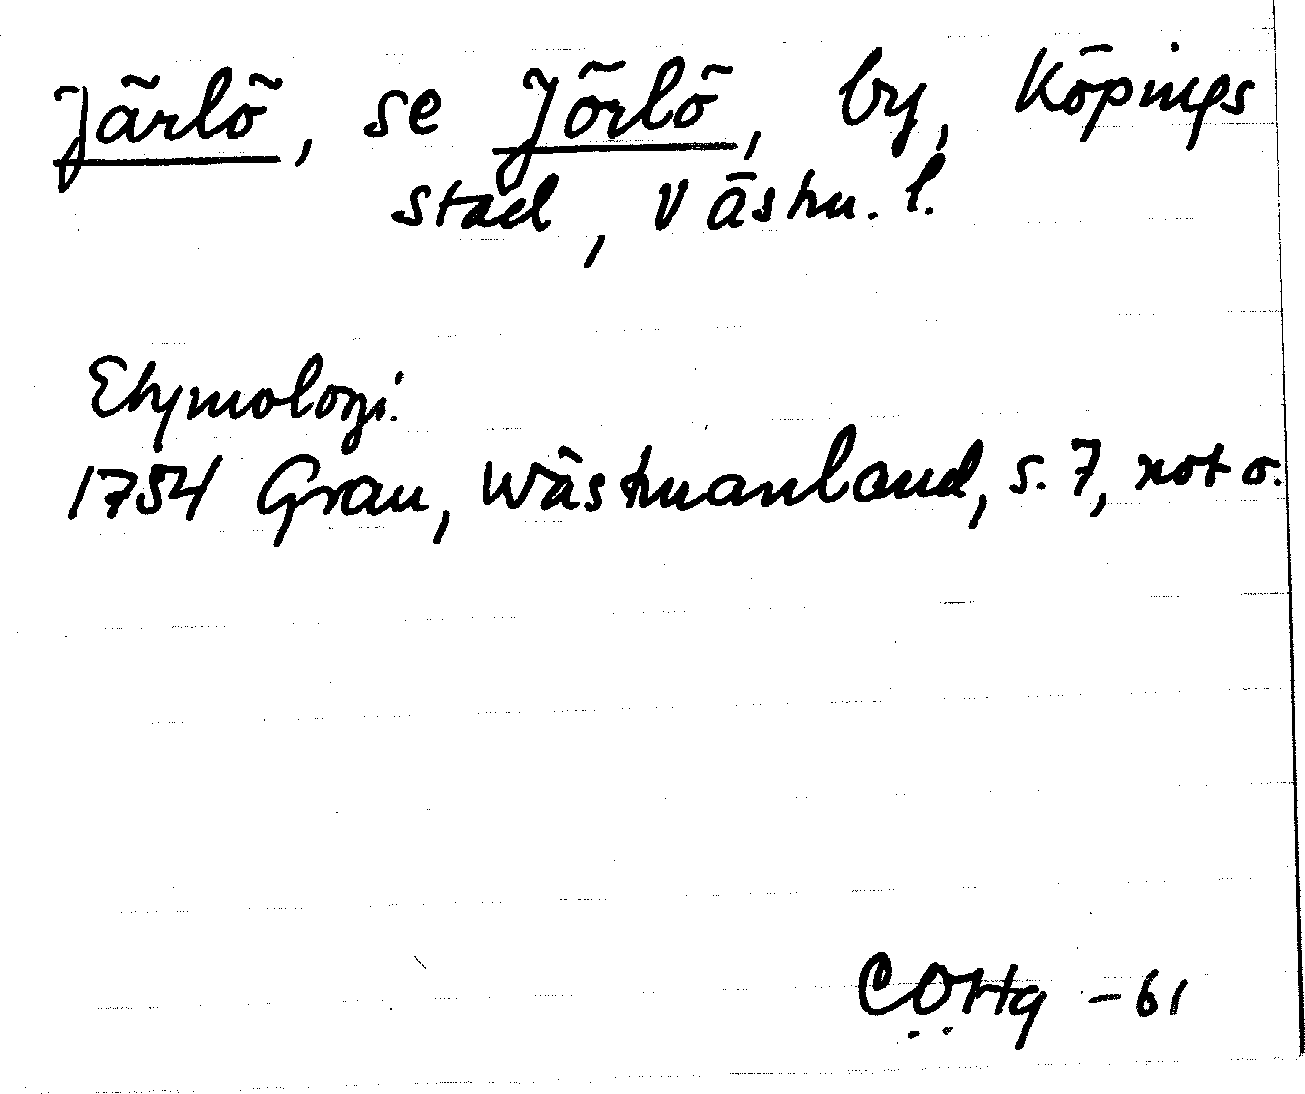 Järlö, se Jörlö, by, Köpings
stad, Västm. l.
Etymologi.
1754 Grau, Wästmanland, s. 7, not o.
COHq -61